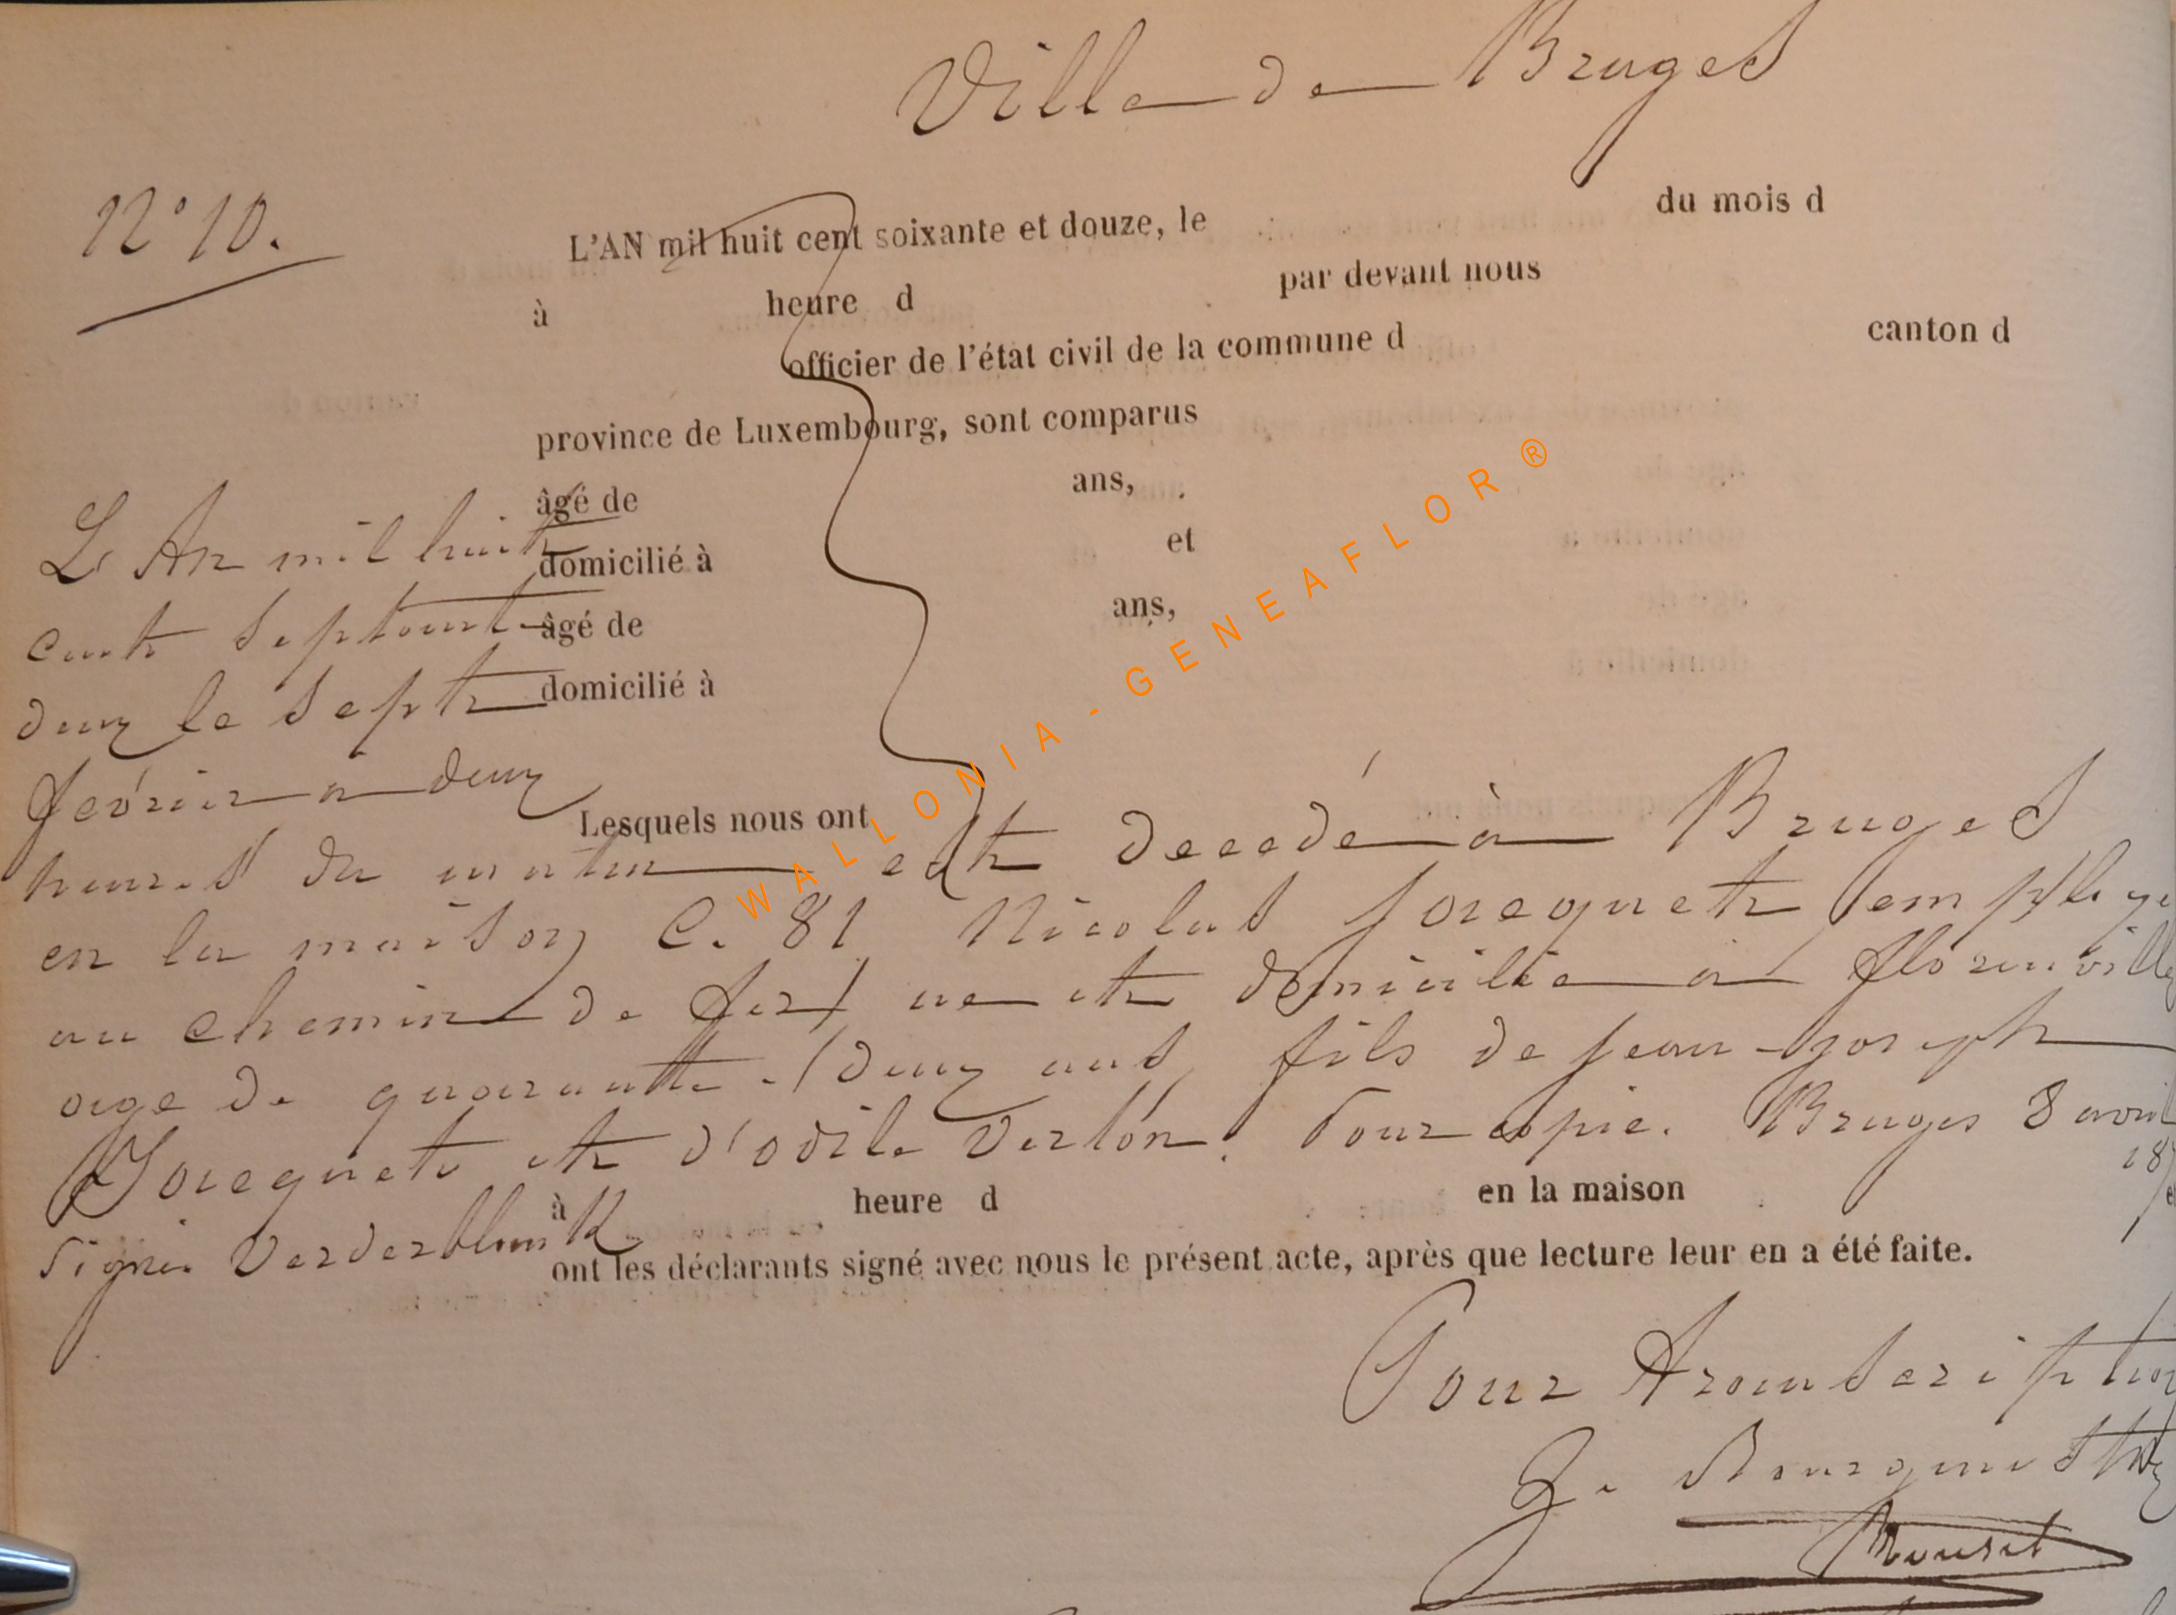 Ville de Bruges
N° 10.
L'AN mil huit cent soixante et douze, le du mois d
à heure d par devant nous
officier de l'état civil de la commune d canton d
province de Luxembourg, sont comparus
âgé de ans,
domicilié à et
âgé de ans,
domicilié à
L'An mil huit
cent septante
deux le sept
février à deux
Lesquels nous ont
heures du matin est decedé à Bruges
en la maison C. 81 Nicolas Jocquet employé
au chemin de fer né et domicilié à florenville
age de quarante deux ans, fils de Jean-Joseph
Jocquet et d'odile Verlon. Pour copie. Bruges 8 avril
187
à heure d en la maison
signé
ont les déclarants signé avec nous le présent acte, après que lecture leur en a été faite.
Pour transcription
Le Bourgmestre
WALLONIA - GENEAFLOR ®